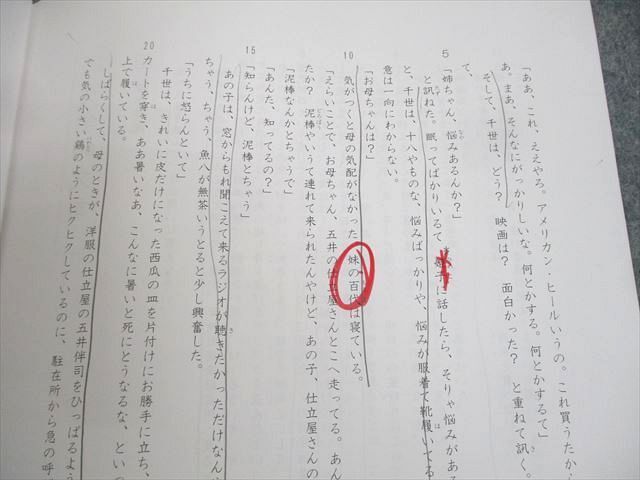 「ああ、これ、ええやろ。アメリカン・ヒールいうの。これ買うたから
あ。まあ、そんなにがっかりしいな。何とかする。何とかするて」
そして、千世は、どう？　映画は？　面白かった？　と重ねて訊く。
て、
5
「姉ちゃん、悩みあるんか？」
と訊ねた。眠ってばかりいるて
子に話したら、そりゃ悩みがある
と、千世は、十八やものな、悩みばっかりや、悩みが服着て靴履いてる
意は一向にわからない。
「お母ちゃんは？」
10
気がつくと母の気配がなかった。妹の百代は寝ている。
「えらいことで、お母ちゃん、五井の仕立屋さんとこへ走ってる。あん
たか？　泥棒やいうて連れて来られたんやけど、あの子、仕立屋さんの
「泥棒なんかとちゃうで」
「あんた、知ってるの？」
15
「知らんけど、泥棒とちゃう」
あの子は、窓からもれ聞こえて来るラジオが聴きたかっただけなんや
ちゃう、ちゃう、魚八が無茶いうとると少し興奮した。
「うちに怒らんといて」
千世は、きれいに皮だけになった西瓜の皿を片付けにお勝手に立ち、
20
カートを穿き、ああ暑いなあ、こんなに暑いと死にとうなるな、といっ
上で履いている。
しばらくして、母のときが、洋服の仕立屋の五井伴司をひっぱるよう
でも気の小さい鶏のようにヒクヒクしているのに、駐在所から急の呼